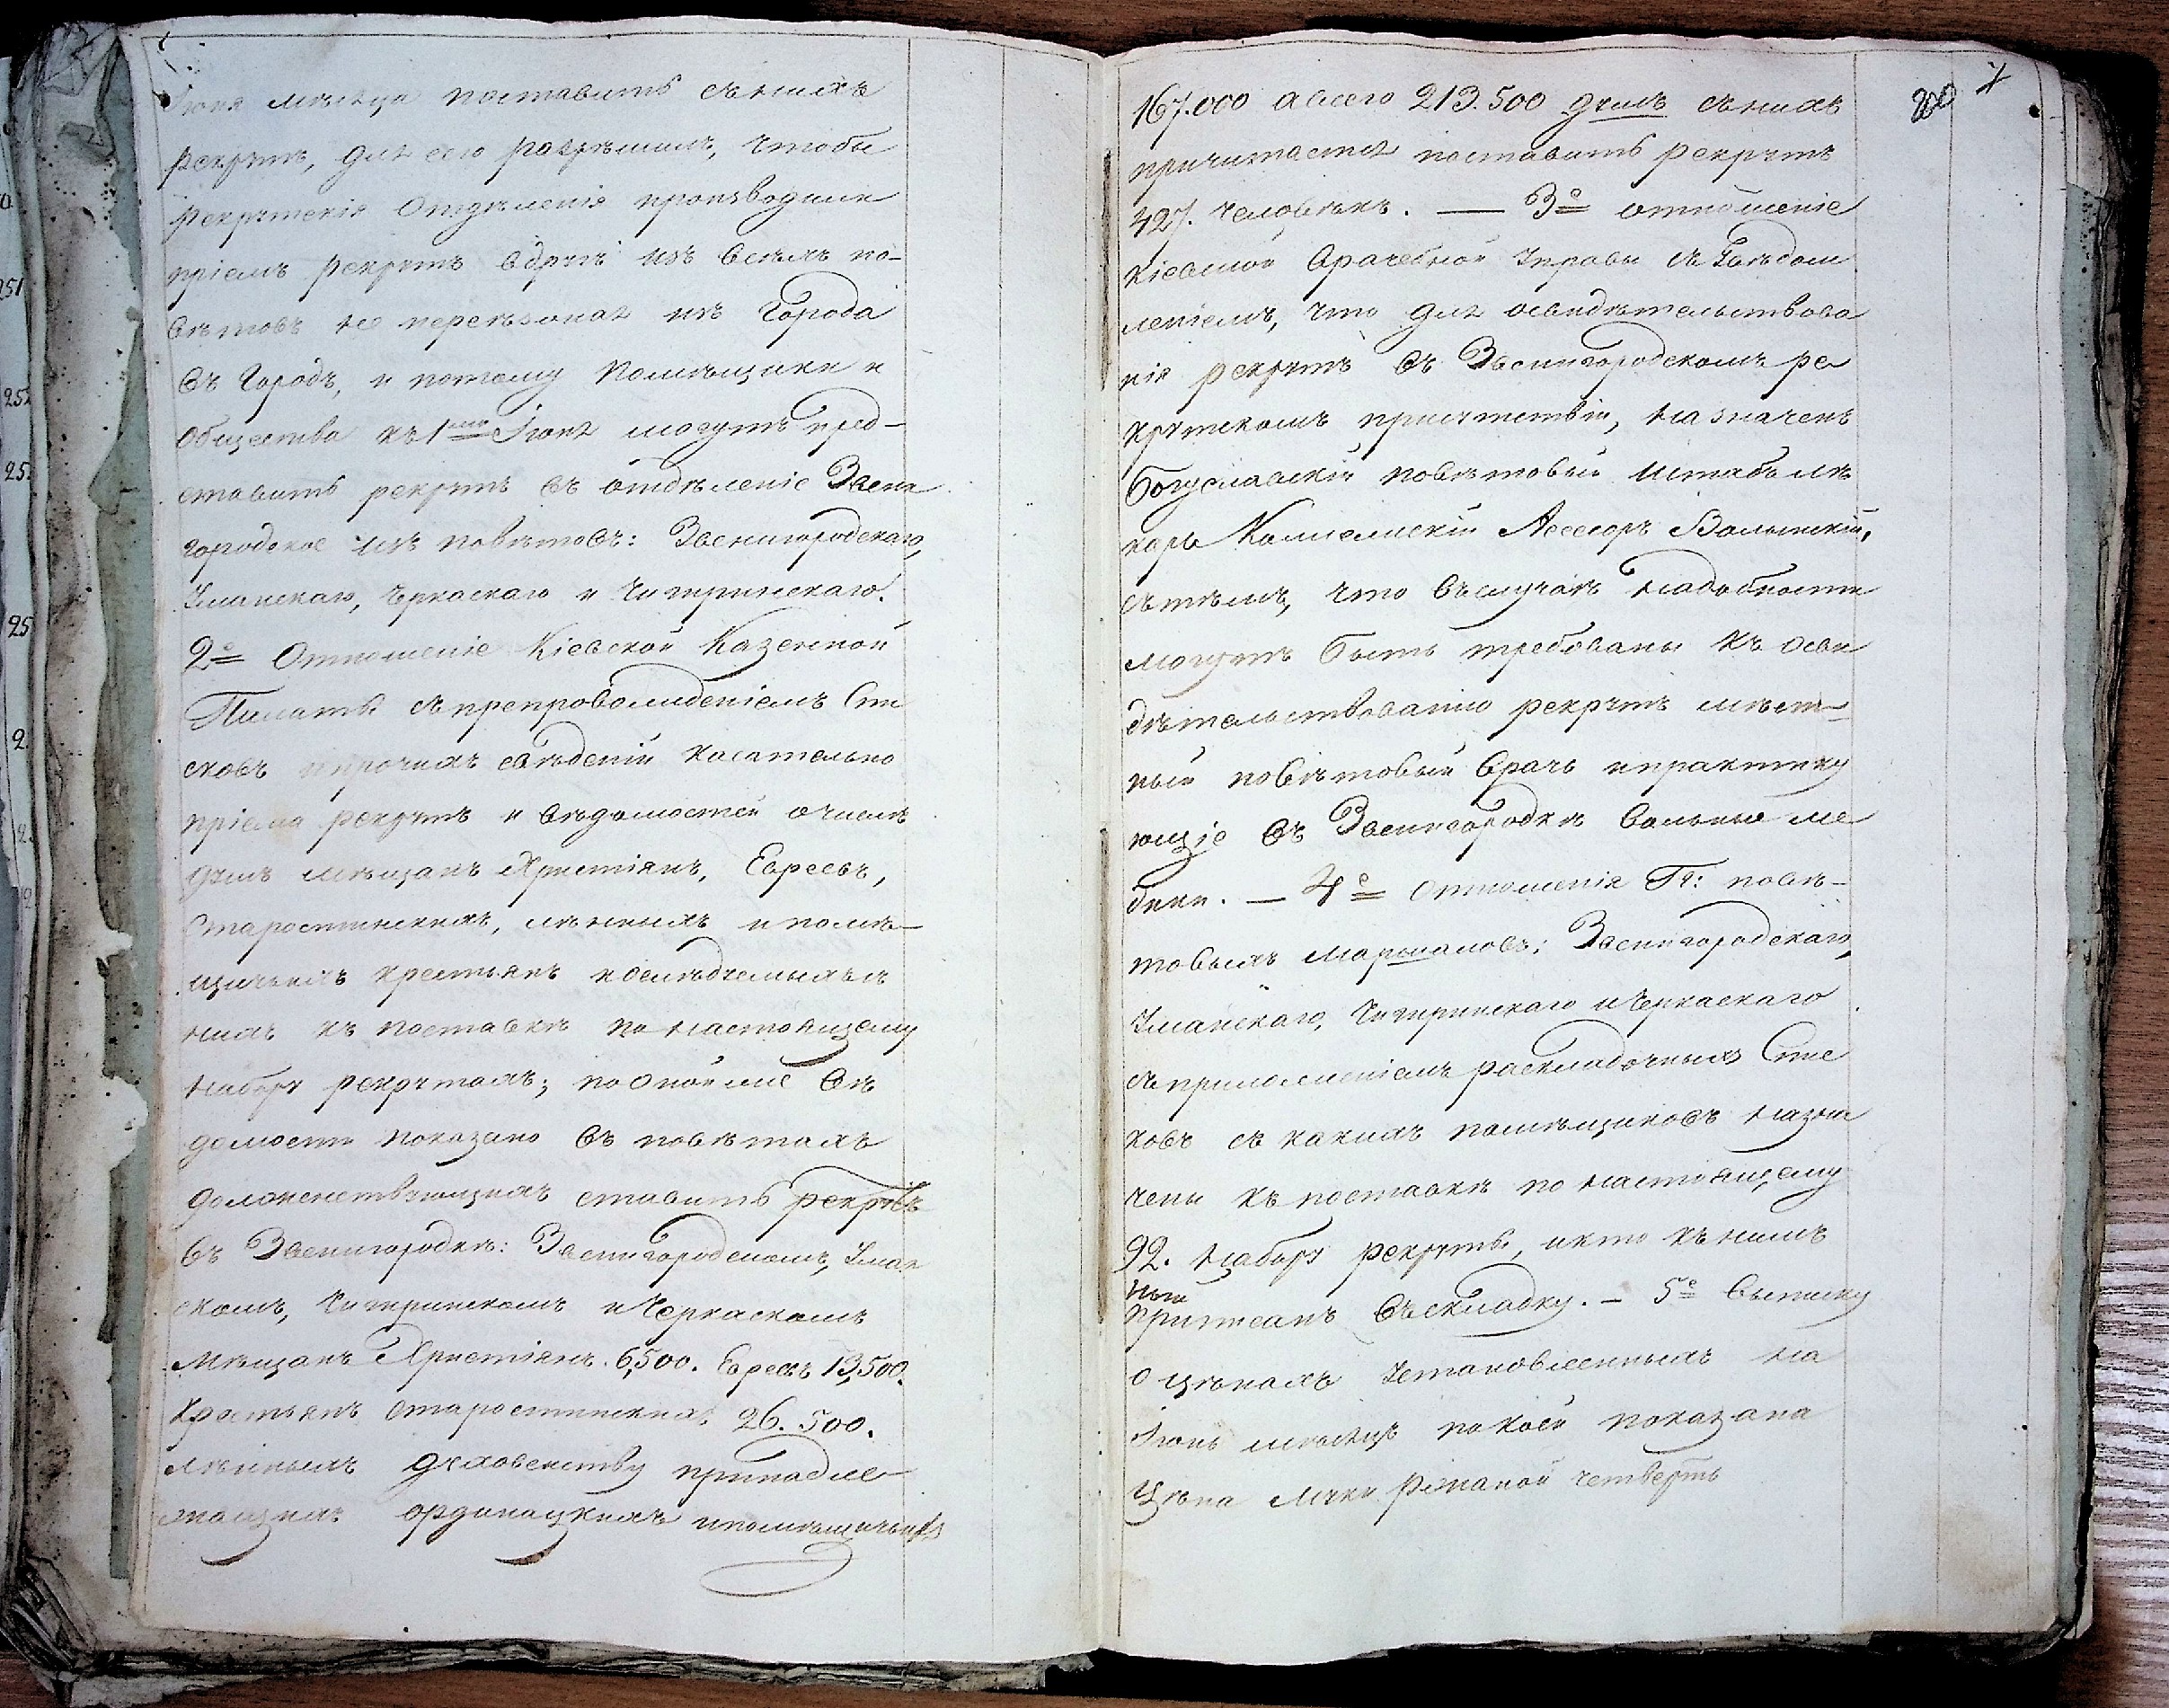 Іюня месяца поставить съ нихъ
рекрутъ, для сего разрешилъ, чтобы
рекрутскія Отделенія производили
пріемъ рекрутъ вдругъ изъ всехъ по-
ветовъ не переезжая изъ Города
въ Городъ, и потому Помещики и
Общества къ 1му Іюня могутъ пред-
ставить рекрутъ въ отделеніе Звени
городское изъ поветовъ: Звенигородскаго,
Уманскаго, Черкаскаго и Чигиринскаго.
2е Отношеніе Кіевской Казенной
Палаты съ препровожденіемъ Спи
сковъ и прочихъ сведеній касательно
пріема рекрутъ и ведомостей о числе
душъ мещанъ Христіянъ, Евреевъ,
Старостинскихъ, ленныхъ и поме-
щичьихъ крестьянъ и следуемыхъ съ
нихъ къ поставке по настоящему
набору рекрутахъ; по оной же ве
домости показано въ поветахъ
долженствующихъ ставить рекрутъ
въ Звенигородке: Звенигородскомъ, Уман
скомъ, Чигиринскомъ и Черкаскомъ
Мещанъ Христіянъ. 6,500. Евреевъ 13,500.
Крестьянъ Старостинскихъ 26.500.
ленныхъ духовенству принадле-
жащихъ ординацкихъ и помещичьихъ
167.000 а всего 213.500 душъ съ нихъ
причитается поставить рекрутъ
427. человекъ. — 3е отношеніе
Кіевской Врачебной Управы съ уведом
леніемъ, что для освидетельствова
нія рекрутъ въ Звенигородскомъ ре
крутскомъ присутствіи, назначенъ
Богуславскій поветовый Штабъ ле
карь Коллежскій Ассесоръ Волынскій,
съ темъ, что въ случае надобности
могутъ быть требованы къ осви
детельствованію рекрутъ мест-
ный поветовый врачъ и практику
ющіе въ Звенигородке вольные ме
дики. — 4е Отношенія Гг: пове-
товыхъ маршаловъ: Звенигородскаго,
Уманскаго, Чигиринскаго и Черкаскаго
съ приложеніемъ раскладочныхъ Спис
ковъ съ какихъ помещиковъ назна
чены къ поставке по настоящему
92. набору рекруты, и кто къ нимъ
приписанъ въ складку. — 5е Выписку
о ценахъ Установленныхъ на
Іюнь месяцъ по коей показана
Цена муки ржаной четверть